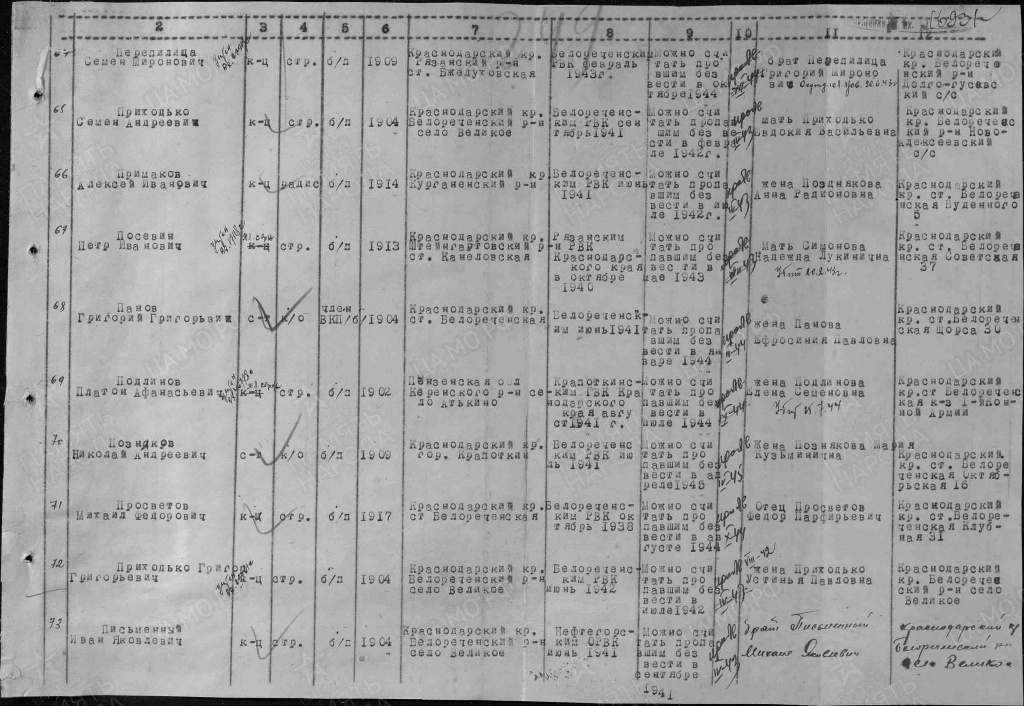 2 3 4 5 6 7 8 9 10 11 12
Перепилица
Семен Миронович
к-ц стр. б/п 1909
Краснодарский кр.
Рязанский р-н
ст. Бжедуховская
Белореченским
РВК февраль
1943г.
Можно счи
тать про
павшим без
вести в ок
тябре1944
брат Перепилица
Григорий Мироно
вич
Краснодарский
кр. Белорече
нский р-н
Долго-гусевс
кий с/с
65
Приходько
Семен Андреевич
к-ц стр. б/п 1904
Краснодарский кр.
Белореченский р-н
село Великое
Белореченс-
ким РВК сен
тябрь1941
Можно счи
тать пропа
вшим без ве
сти в февра
ле 1942г.
мать Приходько
Евдокия Васильевна
Краснодарский
кр. Белореченс
кий р-н Ново-
Алексеевский
с/с
66
Примаков
Алексей Иванович
к-ц радис б/п 1914
Краснодарский кр.
Курганенский р-н
Белореченс-
ким РВК июнь
1941
Можно счи
тать пропа
вшим без
вести в ию
ле 1942г.
жена Позднякова
Анна Радионовна
Краснодарский
кр. ст. Белорече
нская Буденного
5
67
Посевин
Петр Иванович
к-ц стр. б/п 1913
Краснодарский кр.
Штейнгартовский р-н
ст. Канеловская
Рязанским
РВК
Краснодарс-
кого края
в октябре
1940
Можно счи
тать про
павшим бе
вести в
мае 1943
Мать Симонова
Надежда Лукинична
Краснодарский
кр. ст. Белорече
нская Советская
37
68
Панов
Григорий Григорьевич
с-т к/о
член
ВКП/б/ 1904
Краснодарский кр.
ст. Белореченская
Белореченск-
им июнь1941
Можно счи
тать пропа
вшим без
вести в ян
варе 1944
жена Панова
Ефросиния Павловна
Краснодарский
кр. ст.Белоречен
ская Щорса 30
69
Подлинов
Платон Афанасьевич
к-ц стр. б/п 1902
Пензенская обл
Керенского р-н се-
ло Атькино
Крапоткинс-
ким ГВК Кра
нодарского
края авгу
ст1941 г.
Можно счи
тать про
павшим без
вести в
июле 1944
жена Подлинова
Елена Семеновна
Краснодарский
кр,ст Белоречен
ская к-з 1-йКон-
ной Армии
70
Позняков
Николай Андреевич
с-т к/о б/п 1909
Краснодарский кр.
гор. Крапоткин
Белореченс-
ким РВК ию
ль 1941
Можно счи
тать про
павшим без
вести в ап
реле1945
Жена Познякова Мария
Кузьминична
Краснодарский
кр. ст. Белоре
ченская Октяб-
рьская 16
71
Просветов
Михаил Федорович
к-ц стр. б/п 1917
Краснодарский кр.
ст Белореченская
Белореченс-
ким РВК ок
тябрь 1938
Можно счи
тать про
павшим без
вести в ав
густе 1944
Отец Просветов
Федор Парфирьевич
Краснодарский
кр. ст.Белоре-
ченская Клуб-
ная 31
72
Приходько Григор
Григорьевич
к-ц стр. б/п 1904
Краснодарский кр.
Белореченский р-н
село Великое
Белореченс-
ким РВК
июнь 1942
Можно счи
тать про
павшим без
вести в
июле1942
жена Приходько
Устинья Павловна
Краснодарский
кр. Белоречен
ский р-н село
Великое
73
Письменный
Иван Яковлевич
к-ц стр. б/п 1904
Краснодарский кр.
Белореченский р-н
село Великое
Нефтегорс-
ким ОРВК
июнь 1941
Можно счи
тать пропа
вшим без
вести в
сентябре
1941
брат Письменный
Михаил Яковлевич
Краснодарский кр
Белореченский рн
село Великое